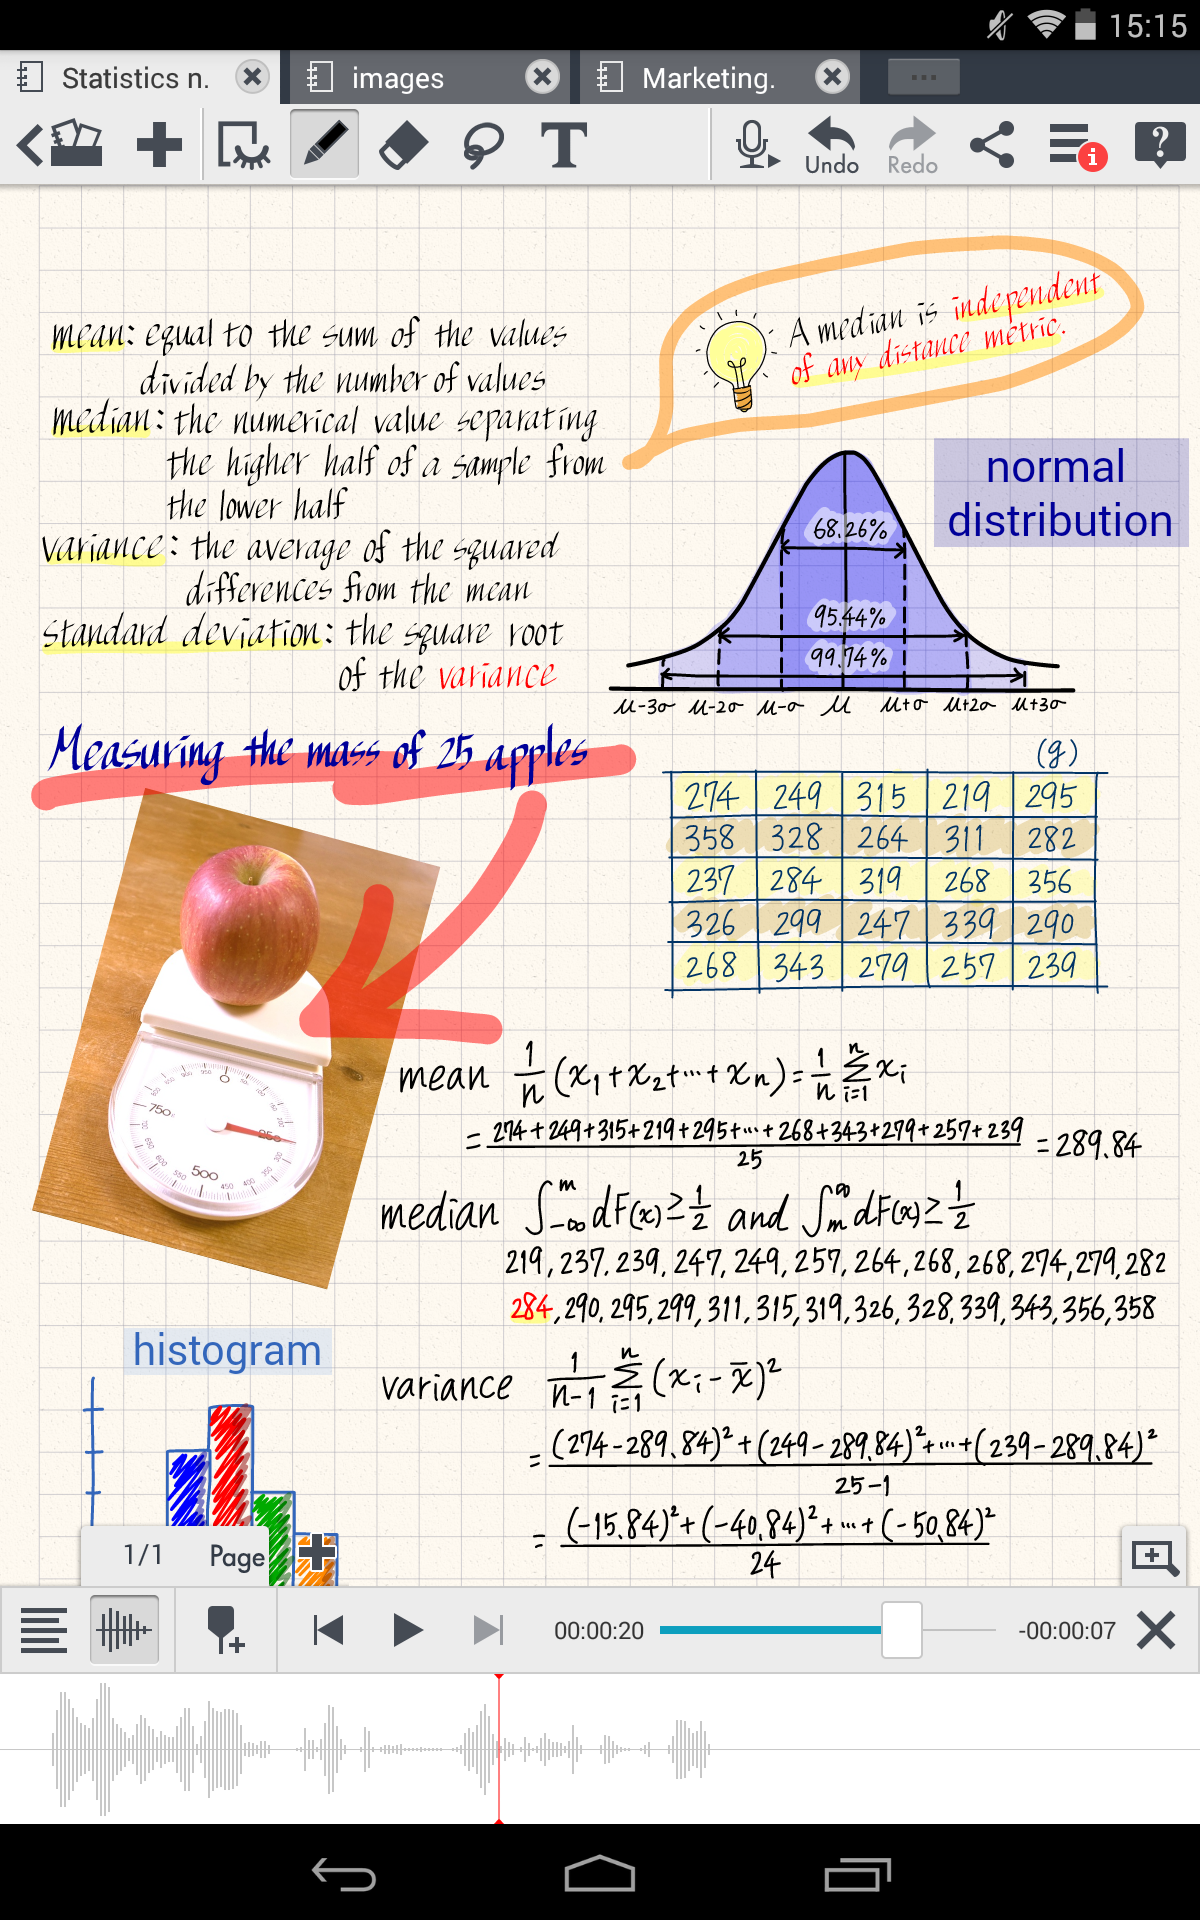 15:15
Statistics n.
images
Marketing.
...
T
Undo
Redo
mean: equal to the sum of the values
divided by the number of values
median: the numerical value separating
the higher half of a sample from
the lower half
variance: the average of the squared
differences from the mean
Standard deviation: the square root
of the variance
A median is independent
of any distance metric.
normal
distribution
68.26%
95.44%
99.74%
μ-3σ μ-2σ μ-σ μ μ+σ μ+2σ μ+3σ
Measuring the mass of 25 apples
(g)
274 249 315 219 295
358 328 264 311 282
237 284 319 268 356
326 299 247 339 290
268 343 279 257 239
0
750
250
500
mean 1/n (x₁+x₂+…+xₙ)=1/n Σᵢ₌₁ⁿ xᵢ
= 274+249+315+219+295+…+268+343+279+257+239 / 25 = 289.84
median ∫₋∞ᵐ dF(x)≥1/2 and ∫ₘ∞ dF(x)≥1/2
219, 237, 239, 247, 249, 257, 264, 268, 268, 274, 279, 282
284, 290, 295, 299, 311, 315, 319, 326, 328, 339, 343, 356, 358
histogram
variance 1/n-1 Σᵢ₌₁ⁿ (xᵢ - x̄)²
= (274-289.84)²+(249-289.84)²+…+(239-289.84)² / 25-1
= (-15.84)²+(-40.84)²+…+(-50.84)² / 24
1/1 Page
00:00:20
-00:00:07